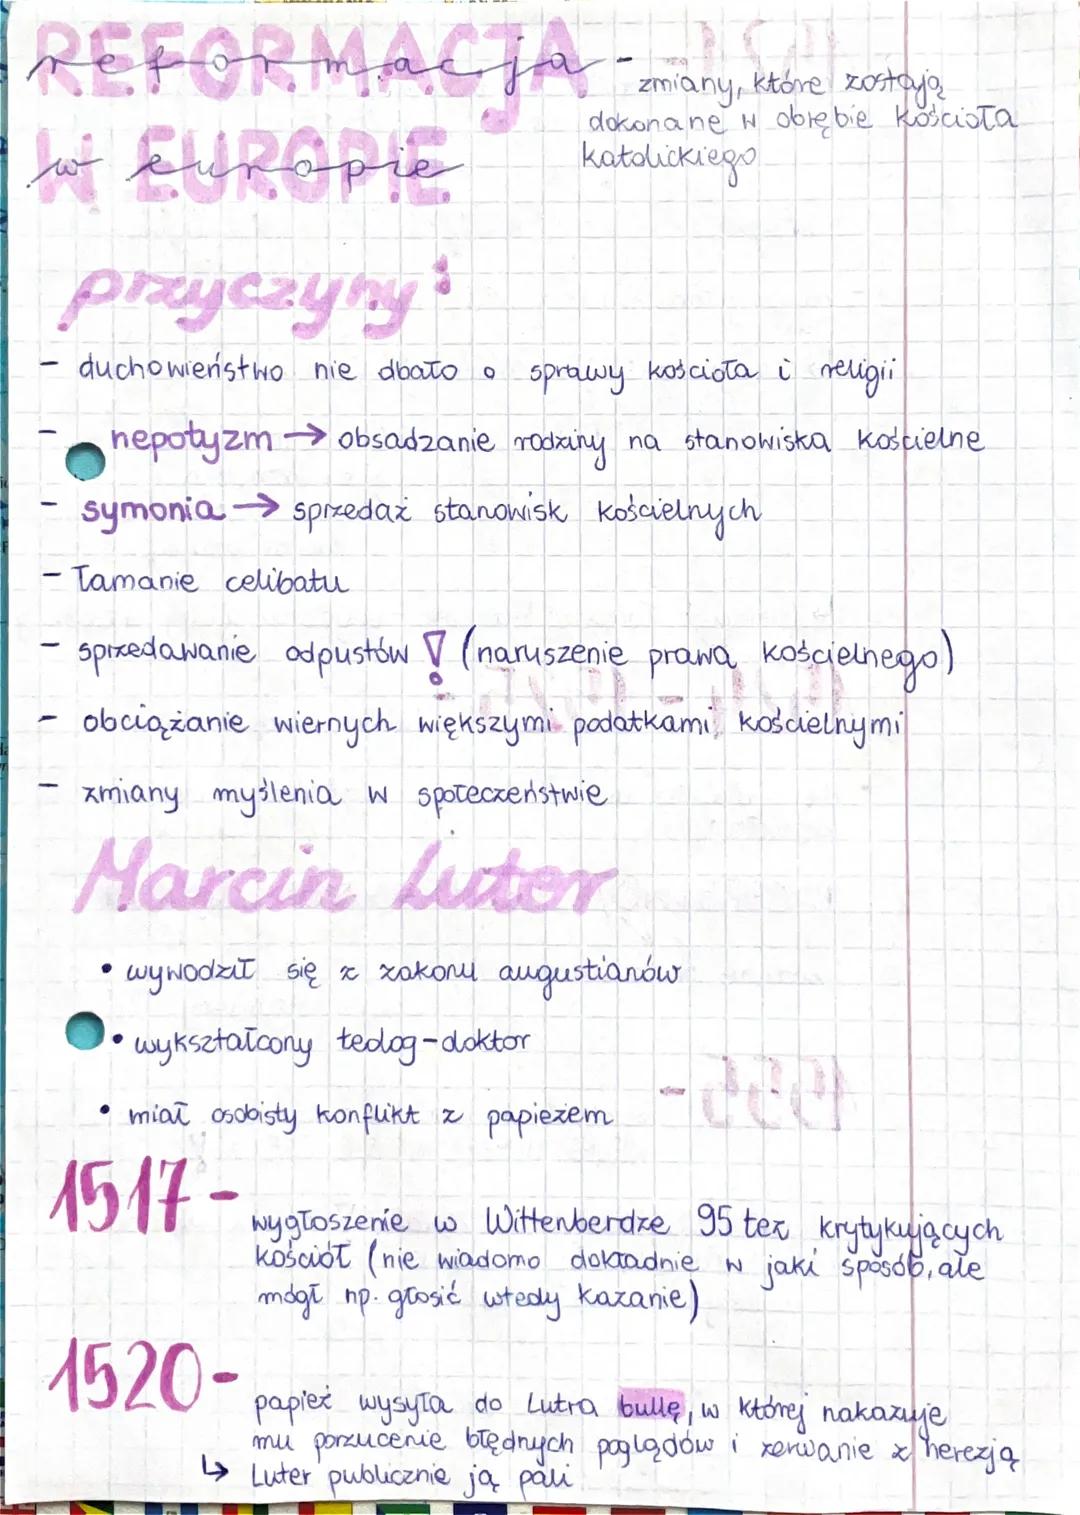 REFORMACJA
reformacja -
zmiany, które zostają
dokonane w obrębie kościoła
katolickiego
W EUROPIE
w europie
przyczyny:
- duchowieństwo nie dbało o sprawy kościoła i religii
- nepotyzm → obsadzanie rodziny na stanowiska kościelne
- symonia → sprzedaż stanowisk kościelnych
- łamanie celibatu
- sprzedawanie odpustów ! (naruszenie prawa kościelnego)
- obciążanie wiernych większymi podatkami kościelnymi
- zmiany myślenia w społeczeństwie
Marcin Luter
• wywodził się z zakonu augustianów
• wykształcony teolog-doktor
• miał osobisty konflikt z papieżem
1517 -
wygłoszenie w Wittenberdze 95 tez krytykujących
kościół (nie wiadomo dokładnie w jaki sposób, ale
mógł np. głosić wtedy kazanie)
1520 -
papież wysyła do Lutra bullę, w której nakazuje
mu porzucenie błędnych poglądów i zerwanie z herezją
↳ Luter publicznie ją pali